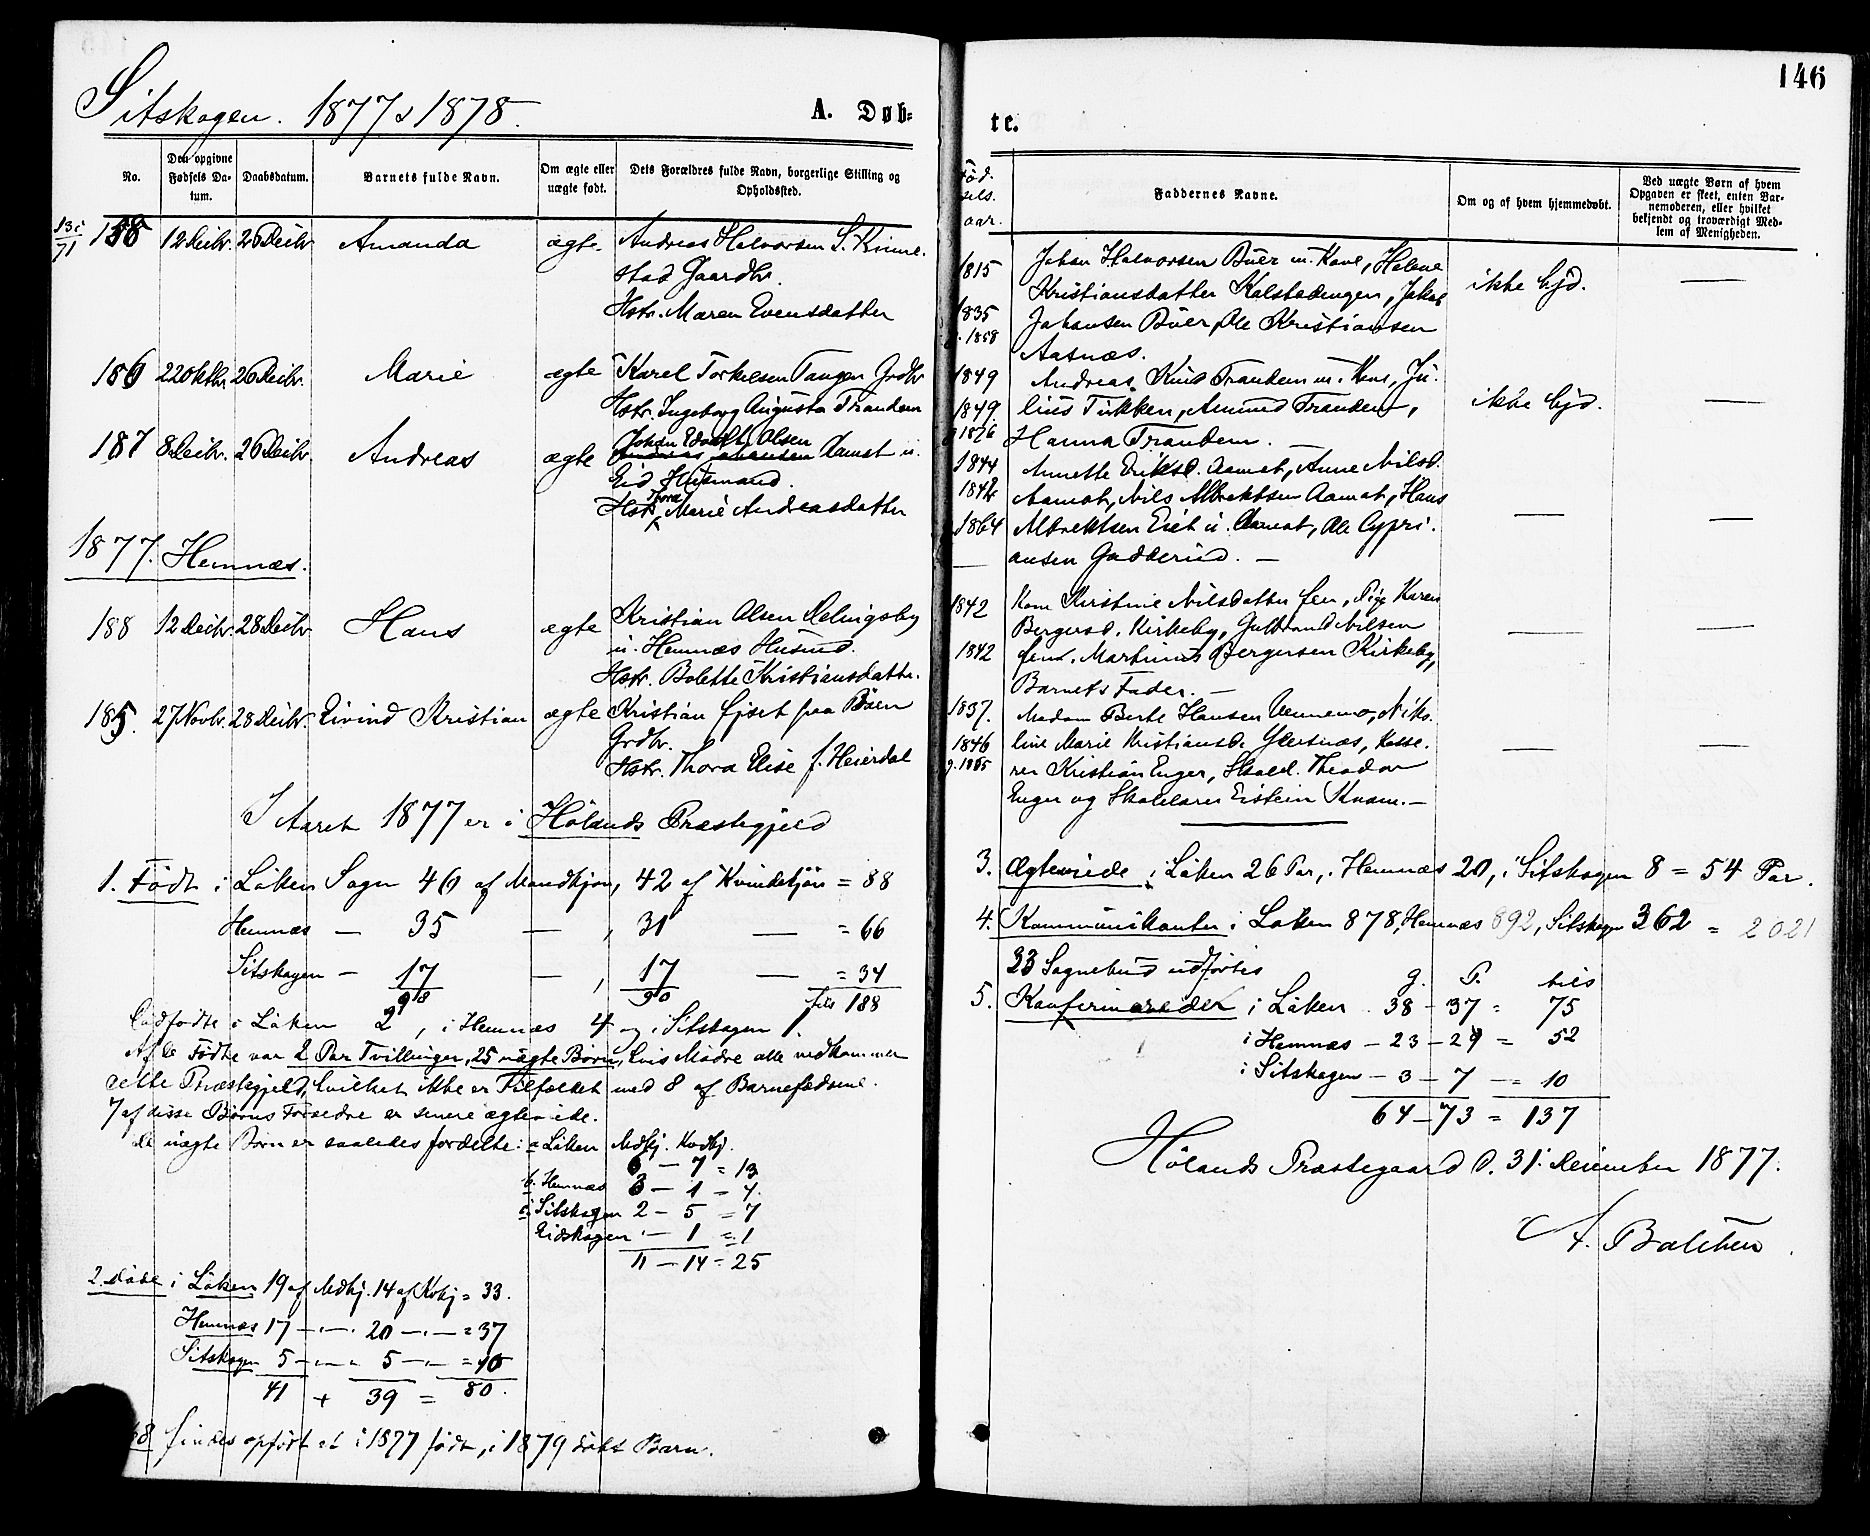 146
Sitskogen. 1877 & 1878.
A. Døb=
te.
No.
Den opgivne Fødsels Datum.
Daabsdatum.
Barnets fulde Navn.
Om ægte eller uægte født.
Dets Forældres fulde Navn, borgerlige Stilling og Opholdssted.
12 Decbr. 26 Decbr. Amanda ægte Andreas Halvorsen S. Kinne-
stad Gaardbr.
Hstr. Maren Evensdatter
186 22 Oktbr. 26 Decbr. Marie ægte Karel Torkelsen Tangen Grdbr
Hstr. Ingeborg Augusta Trandem
187 8 Decbr. 26 Decbr. Andreas ægte Johan Edvard Olsen Aamot u.
Eid Husmand.
Hstr. Thora Marie Andreasdatter
1877. Hemnæs.
188 12 Decbr. 28 Decbr. Hans ægte Kristian Olsen
u. Hemnæs Husmd.
Hstr. Bolette Kristiansdatter.
185. 27 Novbr. 28 Decbr. Eivind Kristian ægte Kristian Gjist paa Bøen
Grdbr.
Hstr. Thora Elise f. Heierdal
I Aaret 1877 er i Hølands Præstegjeld
1. Født i Løken Sogn 46 af Mandkjøn, 42 af Kvindekjøn = 88
Hemnæs — 35 — , 31 — = 66
Sitskogen — 17 — , 17 — = 34
98 90 tils 188
Dødfødte i Løken 2, i Hemnæs 4 og i Sitskogen 1.
Af de Fødte var 2 Par Tvillinger, 25 uægte Børn, hvis Mødre alle vedkommer
dette Præstegjeld, hvilket ikke er Tilfældet med 8 af Barnefædrene.
7 af disse Børns Forældre er senere ægteviede.
De uægte Børn er saaledes fordelte: a Løken Mdkj. Kvdkj.
6 — 7 = 13
b. Hemnæs 3 — 1 — 4.
c. Sitskogen 2 — 5 = 7
Eidskogen — 1 = 1
11 — 14 = 25
2. Døde i Løken 19 af Mdkj. 14 af Kvkj = 33.
Hemnæs 17 — 20 — = 37
Sitskogen 5 — 5 — = 10
41 + 39 = 80.
findes opført et i 1877 født, i 1879 døbt Barn.
Fød-
sels.
aar.
Faddernes Navne.
Om og af hvem hjemmedøbt.
Ved uægte Børn af hvem Opgaven er skeet, enten Barnemoderen, eller hvilket bekjendt og troværdigt Medlem af Menigheden.
1815 Johan Halvorsen Buer m. Kone, Helene
Kristiansdatter Kolstadengen, Jakob ikke hjd. —
1835 Johansen Buer, Ole Kristiansen
1858 Aatnæs.
1849 Andreas Knud Trandem m. Kone, Ju-
1849 lius Tukken, Amund Trandem, ikke hjd. —
1876 Hanna Trandem.
1844 Annette Eriksd. Aamot, Anne Nilsd.
1842 Aamot, Nils Albrektsen Aamot, Hans
1864 Albrektsen Eid u. Aamot, Ole Cypri-
ansen Gudderud. —
1842 Kone Kirstine Nilsdatter fem, Pige Karen
Bergersd. Kirkeby, Gulbrand Nilsen
1842 fem. Martinus Bergersen Kirkeby,
Barnets Fader. —
1837. Madam Berte Hansen Vennemo, Niko-
1846 line Marie Kristiansd. Gjersnæs, Kasse-
1865 rer Kristian Enger, Skoled. Theodor
Enger og Skolelærer Eistein Kvam. —
3. Ægteviede i Løken 26 Par, i Hemnæs 20, i Sitskogen 8 = 54 Par.
4. Kommunikanter i Løken 878, Hemnæs 892, Sitskogen 362 = 2021
33 Sognebud udførtes
g. P. tils
5. Konfirmerede i Løken 38 — 37 = 75
i Hemnæs — 23 — 29 = 52
i Sitskogen — 3 — 7 — = 10
64 — 73 = 137
Hølands Præstegaard d. 31. December 1877.
A. Balchen